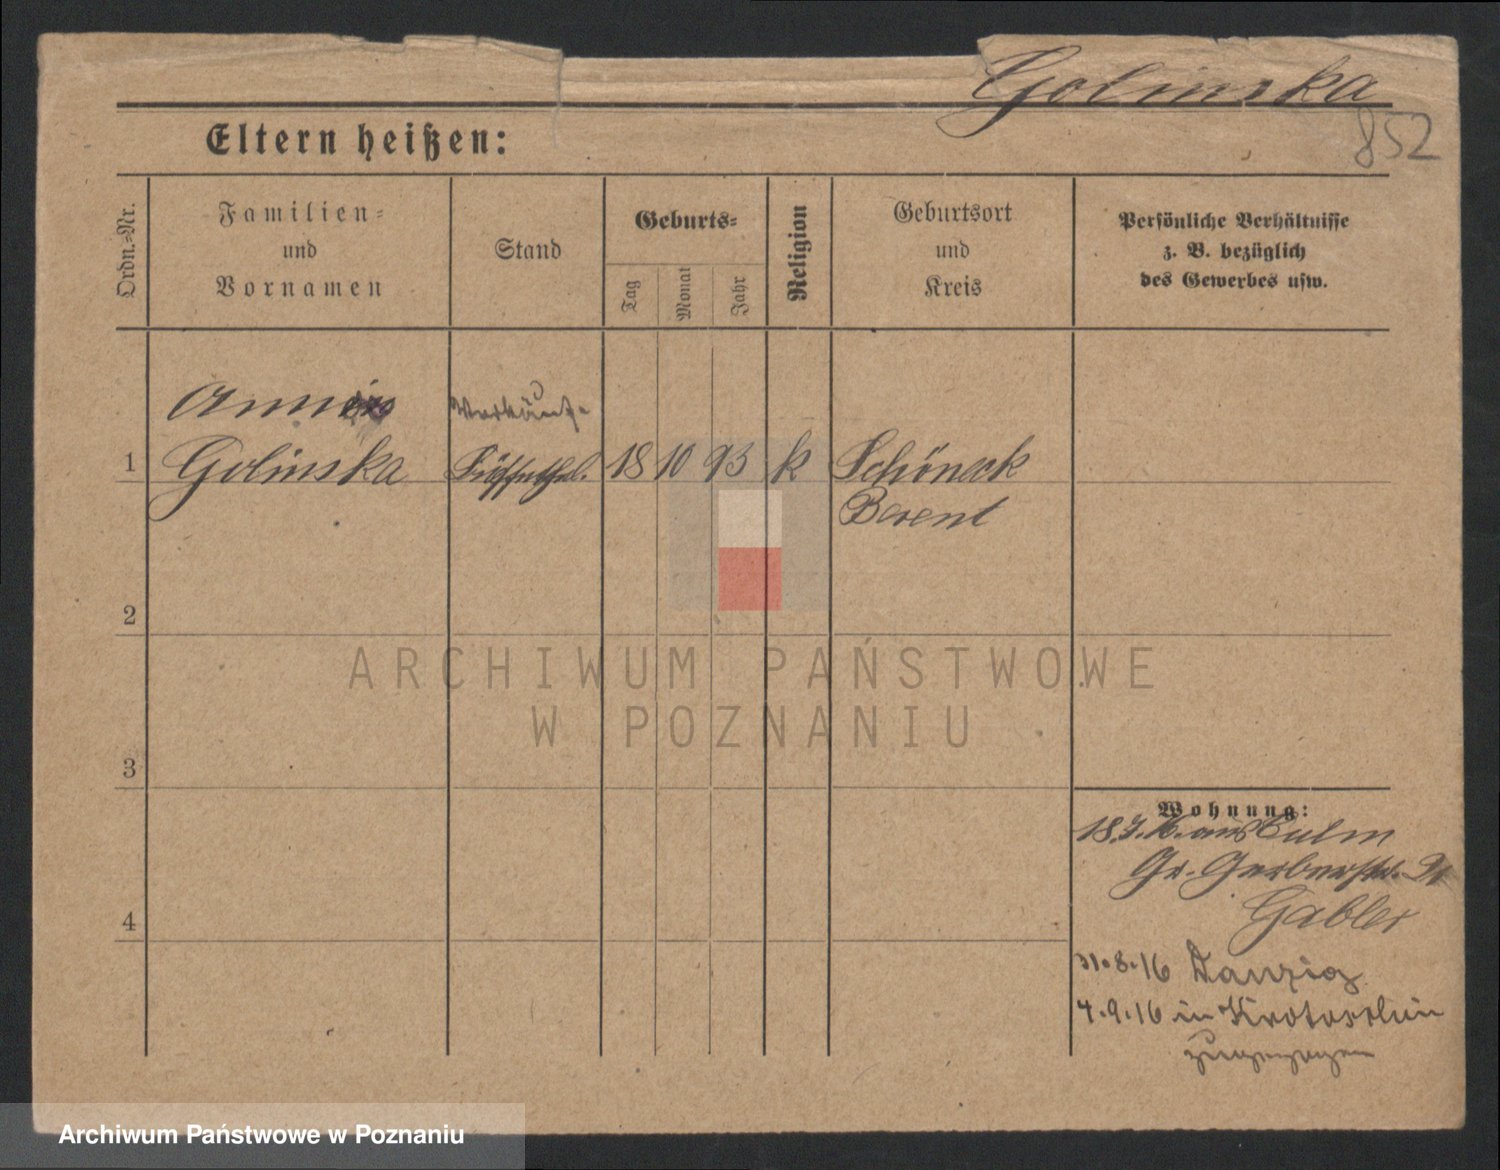 Golinska
852
Eltern heißen:
Ordn.=Nr.
Familien=
und
Vornamen
Stand
Geburts=
Tag
Monat
Jahr
Religion
Geburtsort
und
Kreis
Persönliche Verhältnisse
z. B. bezüglich
des Gewerbes usw.
1
Golinska 18 10 93 k Schöneck
Berent
2
3
4
Wohnung:
aus Culm
Gr. Gerberstr.
Gabler
31.8.16 Danzig
4.9.16 in Krotoschin
zugezogen
ARCHIWUM PAŃSTWOWE
W POZNANIU
Archiwum Państwowe w Poznaniu